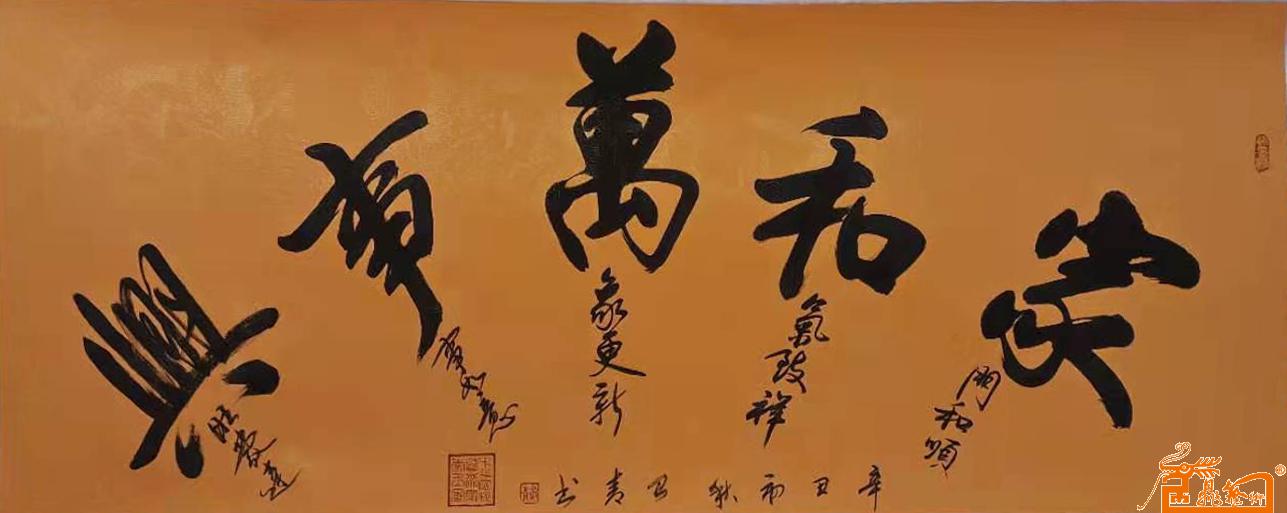 家
門和順
和
氣致祥
萬
象更新
事
事如意
興
旺發達
辛丑初秋 青书